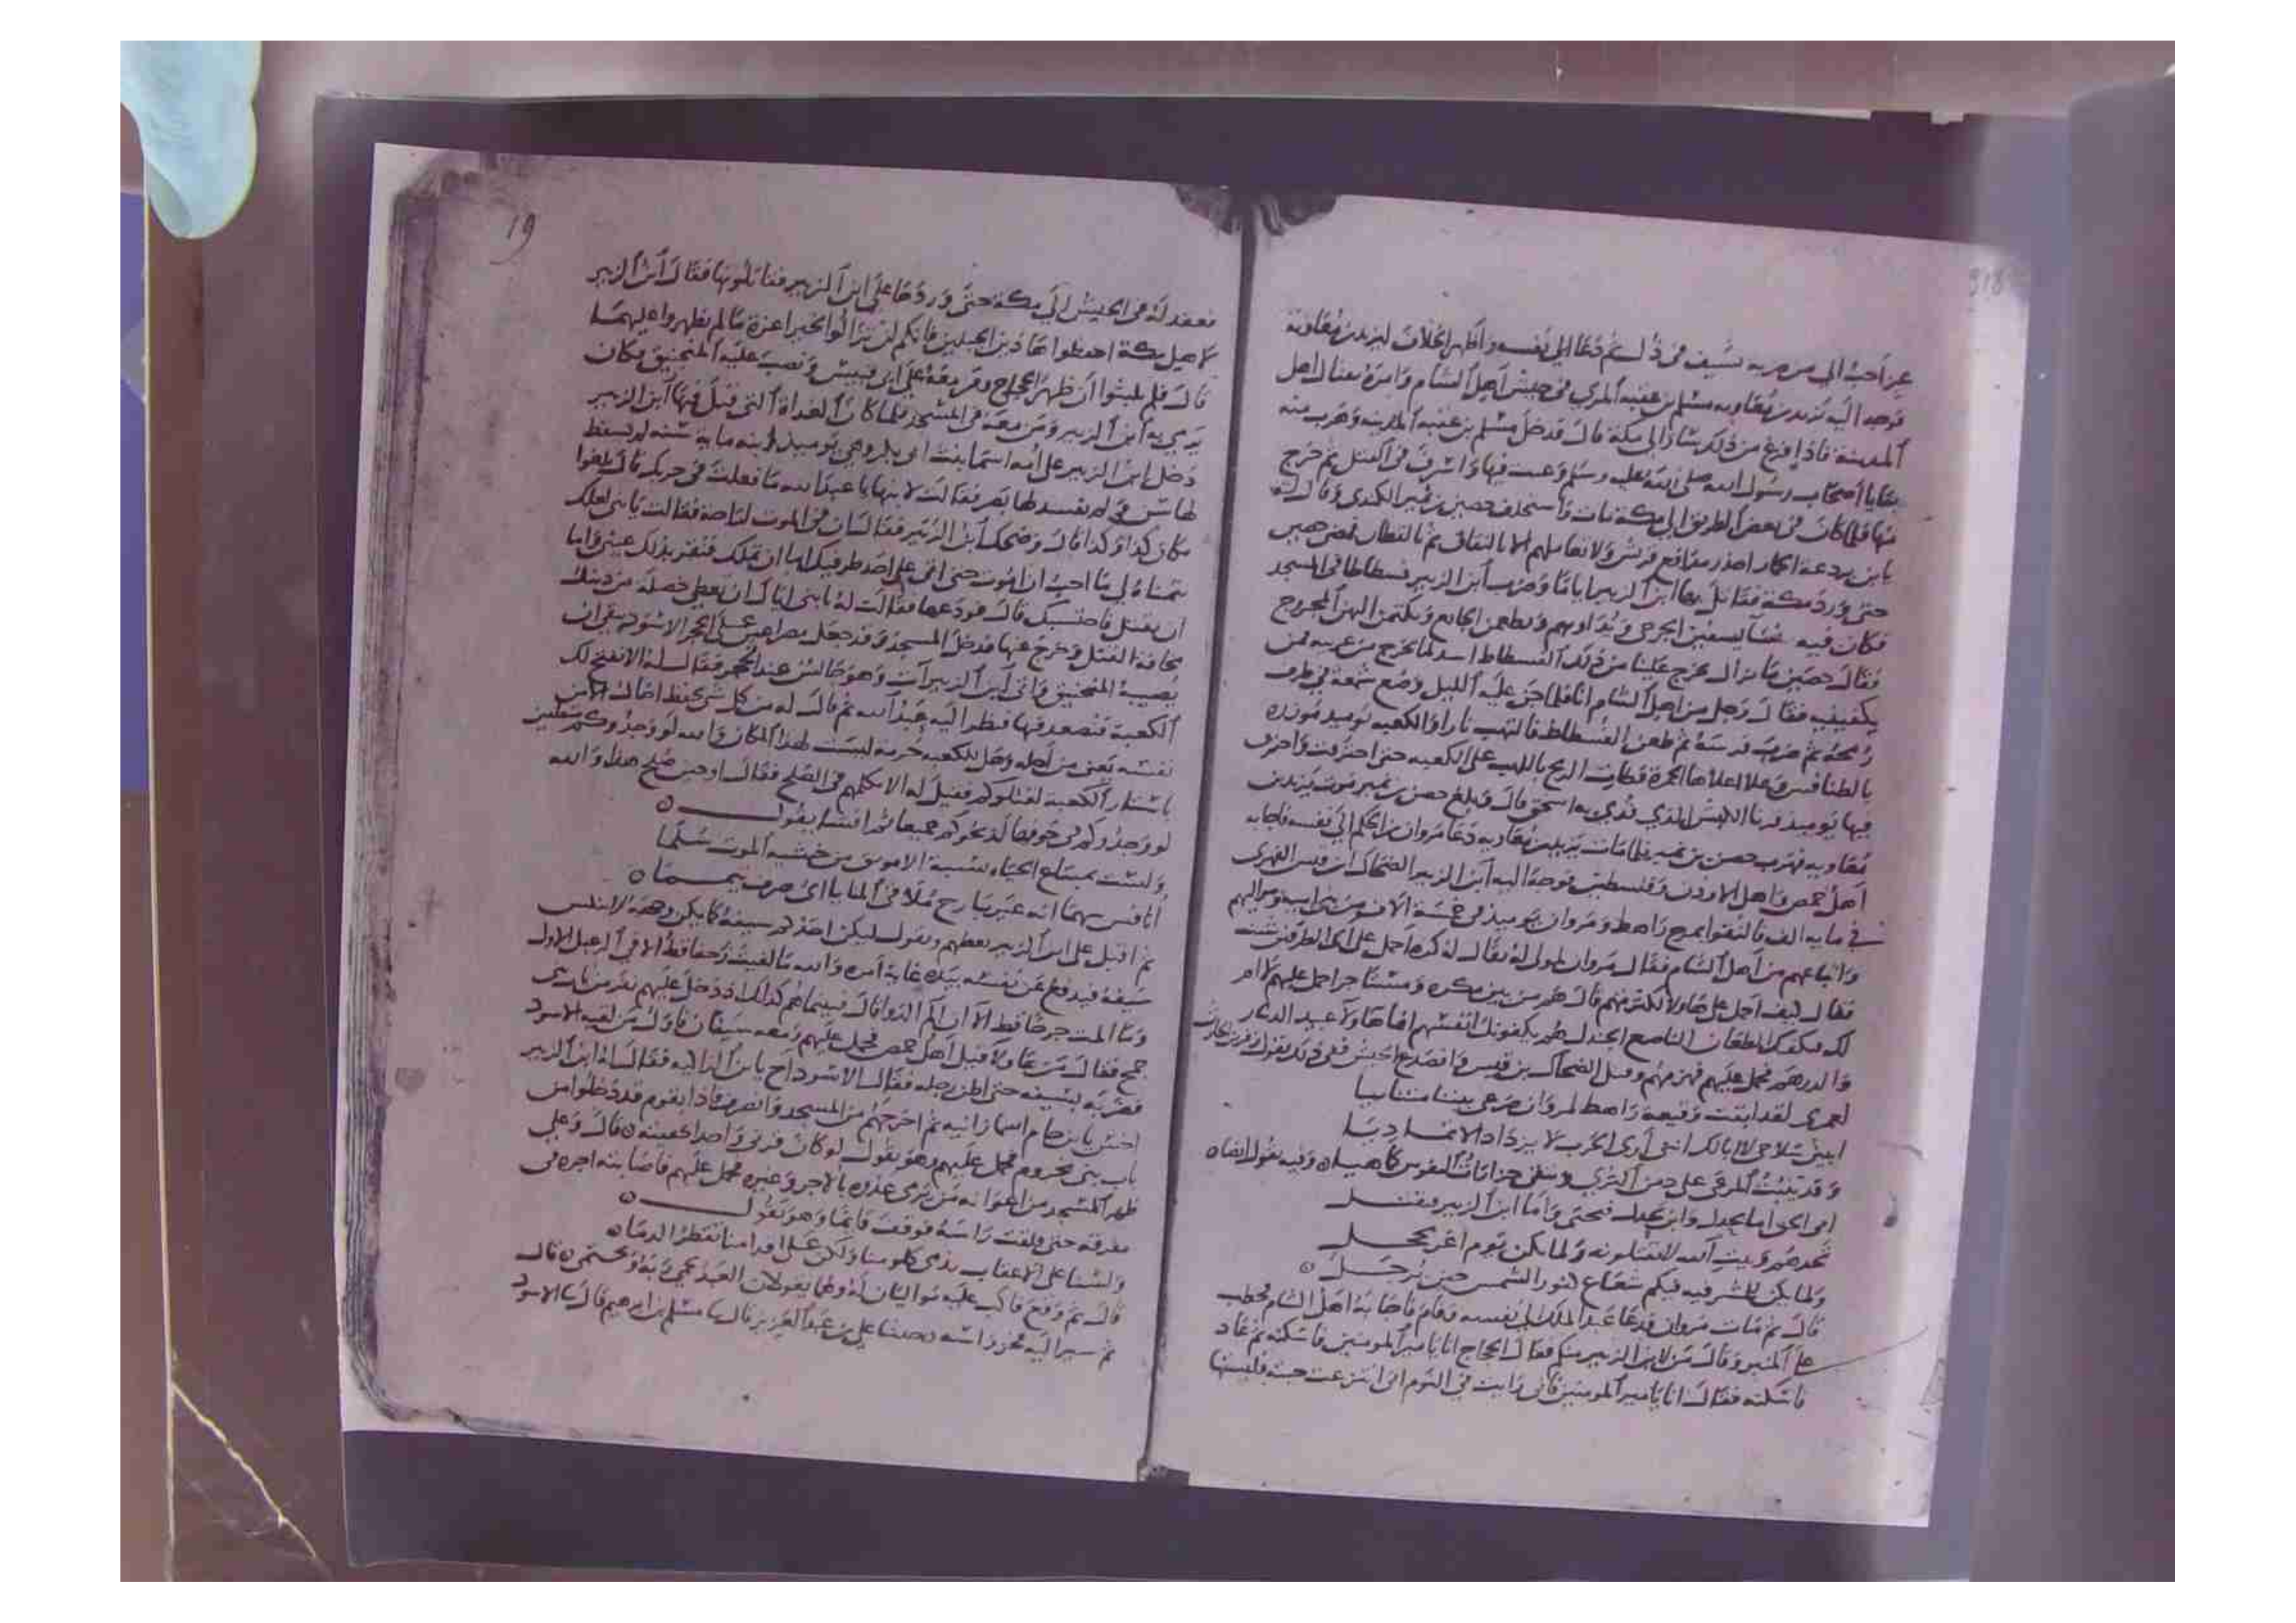 عز أحب الي من ضربه بسيف في ذل ثم دعا الي نفسه وأظهر الخلاف ليزيد بن معاوية
فوجه اليه يزيد بن معاويه مسلم بن عقبه المري في جيش اهل الشام وامره بقتال اهل
المدينة فاذا فرغ من ذلك سار الى مكة قال فدخل مسلم بن عقبه المدينه وهرب منه
بقايا أصحاب رسول الله صلى الله عليه وسلم وعبث فيها واسرف في القتل ثم خرج
منها فلما كان في بعض الطريق الى مكة مات واستخلف حصين بن نمير الكندي وقال له
يا بن بردعة الحمار احذر خدائع قريش ولا تعاملهم الا بالثقاف ثم بالقطاف فمضى حصين
حتى ورد مكة فقاتل بها ابن الزبير اياما وضرب ابن الزبير فسطاطا في المسجد
فكان فيه نسا يسقين الجرحى ويداويهم ويطعمن الجائع ويكتمن اليهن المجروح
فقال حصين ما يزال يخرج علينا من ذلك الفسطاط اسد كانما يخرج من عرينه فمن
يكفينيه فقال رجل من اهل الشام انا فلما جن عليه الليل وضع شمعة في طرف
رمحه ثم ضرب فرسه ثم طعن الفسطاط فالتهب نارا والكعبه يوميذ موزره
بالطنافس وعلا اعلاها الحبرة فطارت الريح باللهب على الكعبه حتى احترقت واحترق
فيها يوميذ قرنا الكبش الذي فدي به اسحق قال وبلغ حصين بن نمير موت يزيد بن
معاويه فهرب حصين بن نمير فلما مات يزيد بن معاويه دعا مروان بن الحكم الى نفسه فاجابه
أهل حمص واهل الاردن وفلسطين فوجه اليه ابن الزبير الضحاك ابن قيس الفهري
في مايه الف فالتقوا بمرج راهط ومروان يوميذ في خمسة الاف من بني اميه ومواليهم
واتباعهم من أهل الشام فقال مروان لمولى له يقال له كره احمل على اي الطرفين شئت
فقال كيف احمل على هاولا لكثرتهم قال هم من بين مكره ومستأجر احمل عليهم لا ام
لك فيكفيك الطعان الناصع الجندل هم يكفونك انفسهم انما هاولا عبيد الدينار
والدرهم فحمل عليهم فهزمهم وقتل الضحاك بن قيس وانصدع الجيش ففي ذلك يقول زفر بن الحارث
لعمري لقد ابقت وقيعة راهط لمروان صرعى بيننا متنائيا
ابيني سلاحي لا ابا لك انني أرى الحرب لا يزداد الا تماديا
وقد ينبت المرعى على دمن الثرى وتبقى حزازات النفوس كما هيا ه وفيه يقول ايضا ه
افي الحق اما بحدل وابن بحدل فيحيى واما ابن الزبير فيقتل
كذبتم وبيت الله لا تقتلونه ولما يكن يوم اغر محجل
ولما يكن للمشرفيه فيكم شعاع كنور الشمس حين ترجل ه
قال ثم مات مروان فدعا عبد الملك الي نفسه وقام فاجابه اهل الشام فخطب
على المنبر وقال من لابن الزبير منكم فقال الحجاج انا يا امير المومنين فاسكته ثم عاد
فاسكته فقال انا يا امير المومنين فاني رايت في النوم اني انتزعت جبته فلبستها
19
فعقد له في الجيش الي مكة حتى وردها على ابن الزبير فقاتلوه بها فقال ابن الزبير
لاهل مكة احفظوا هاذين الجبلين فانكم لن تزالوا بخير اعزة ما لم يظهروا عليهما
قال فلم يلبثوا أن ظهر الحجاج ومن معه على ابي قبيس ونصب عليه المنجنيق فكان
يرمي به ابن الزبير ومن معه في المسجد فلما كان الغداة التي قتل فيها ابن الزبير
دخل ابن الزبير على أمه اسما بنت ابي بكر وهي يوميذ ابنة مايه سنه لم يسقط
لها سن ولم يفسد لها بصر فقالت لابنها يا عبد الله ما فعلت في حربك قال بلغوا
مكان كذا وكذا قال وضحك ابن الزبير فقال ان في الموت لراحة فقالت يا بني لعلك
تتمناه لي ما احب ان اموت حتى اتي على احد طرفيك اما ان تملك فتقر بذلك عيني واما
ان يقتل فاحتسبك قال فودعها فقالت له يا بني اياك ان تعطي خصلة من دينك
مخافة القتل وخرج عنها فدخل المسجد وقد جعل مصراعين على الحجر الاسود يتقي ان
يصيبه المنجنيق واتى ابن الزبير آت وهو جالس عند الحجر فقال له الا نفتح لك
الكعبة فتصعد فيها فنظر اليه عبد الله ثم قال له من كل شي تحفظ اخاك الا من
نفسه يعني من أجله وهل للكعبه حرمة ليست لهذا المكان والله لو وجدوكم متعلقين
باستار الكعبة لقتلوكم فقيل له الا تكلمهم في الصلح فقال اوحين صلح هذا والله
لو وجدوكم في جوفها لذبحوكم جميعا ثم انشا يقول ه
ولست بمبتاع الحياه بسبة الا مرتق من خشيه الموت سلما
أنافس سهما انه غير بارح ملاقي المنايا اي صرف تيمما ه
ثم اقبل على ابن الزبير يعظهم ويقول ليكن احدكم سيفه كما يكن وجهه لا ينكس
سيفه فيدفع عن نفسه بيده كانه امره والله ما لقيت زحفا قط الا في الرعيل الاول
وما المت جرحا قط الا ان الم الدوا قال فبينما هم كذلك اذ دخل عليهم نفر من باب بني
جمح فقال من هاولا قيل أهل حمص فحمل عليهم ومعه سيفان فاول من لقيه الاسود
فضربه بسيفه حتى اطن رجله فقال الاسود اخ يا بن الزانيه فقال له ابن الزبير
اخس يا بن حام اسما زانيه ثم اخرجهم من المسجد وانصرف فاذا بقوم قد دخلوا من
باب بني مخزوم فحمل عليهم وهو يقول لو كان قرني واحدا كفيته ه قال وعلى
ظهر المسجد من اعوانه من يرمي عدوه بالاجر وغيره فحمل عليهم فاصابته اجره في
مفرقه حتى فلقت رأسه فوقف قائما وهو يقول ه
ولسنا على الاعقاب تدمى كلومنا ولكن على اقدامنا تقطر الدما ه
قال ثم وقع فاكب عليه موليان له وهما يقولان العبد يحمي ربه ويحتمي ه قال
ثم سير اليه فحز راسه ه حدثنا علي بن عبد العزيز قال ثنا مسلم بن ابرهيم قال ثنا الاسود